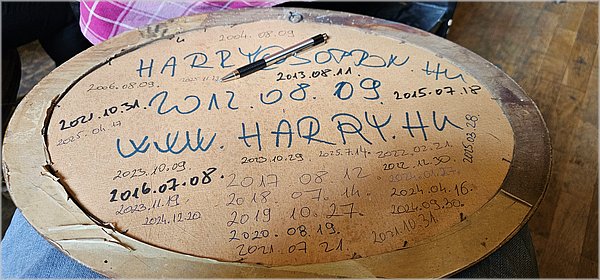 2004.08.09
HARRY@SOPRON.HU
2006.08.09. 2013.08.11.
2021.10.31. 2012.08.09 2015.07.18
2025.04.17
WWW.HARRY.HU
2025.03.28
2023.10.09 2013.10.29 2025.7.14. 2022.02.21.
2016.07.08. 2017 08 12 2022.12.30.
2023.11.19 2018 07.14. 2024.04.16.
2024.12.20 2019 10 27. 2024.09.30.
2020 08.19. 2021.10.31.
2021.07 21.